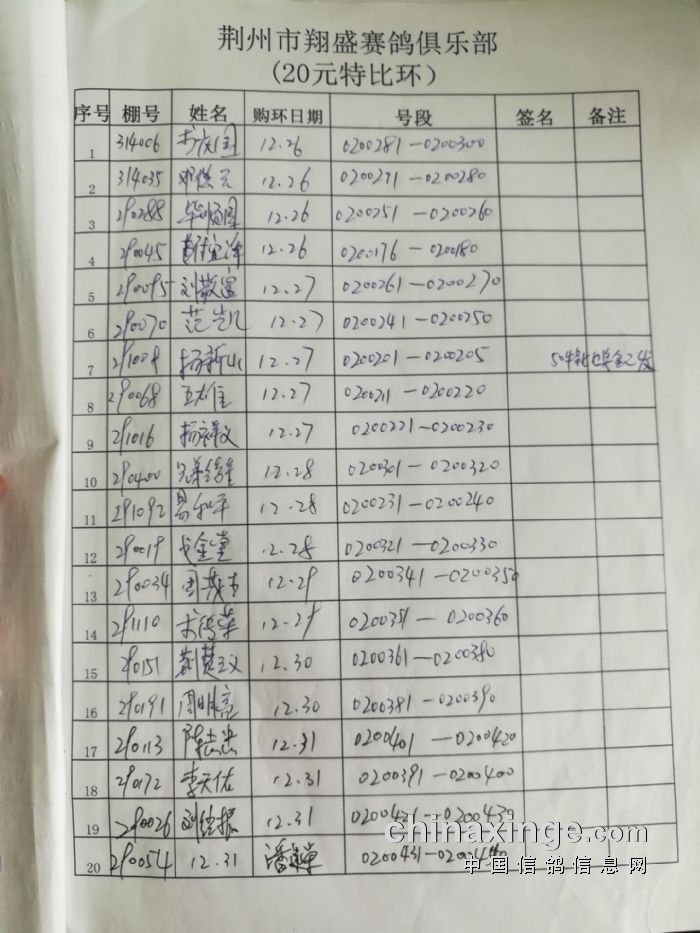 荆州市翔盛赛鸽俱乐部
(20元特比环)
序号 棚号 姓名 购环日期 号段 签名 备注
1 314006 12.26 0200281-0200300
2 314035 12.26 0200271-0200280
3 290288 12.26 0200251-0200260
4 290045 12.26 0200176-0200180
5 290095 刘敬富 12.27 0200261-0200270
6 290070 范凯 12.27 0200241-0200250
7 291009 12.27 0200201-0200205
8 290068 12.27 0200211-0200220
9 291016 12.27 0200221-0200230
10 290400 12.28 0200301-0200320
11 291092 易和平 12.28 0200231-0200240
12 290019 12.28 0200321-0200330
13 290034 12.29 0200341-0200350
14 291110 12.29 0200351-0200360
15 290151 12.30 0200361-0200380
16 290191 周明亮 12.30 0200381-0200390
17 290113 陈志忠 12.31 0200401-0200420
18 290172 李天佑 12.31 0200391-0200400
19 290026 12.31 0200421-0200430
20 290054 12.31 0200431-
chinaxinge.com
中国信鸽信息网